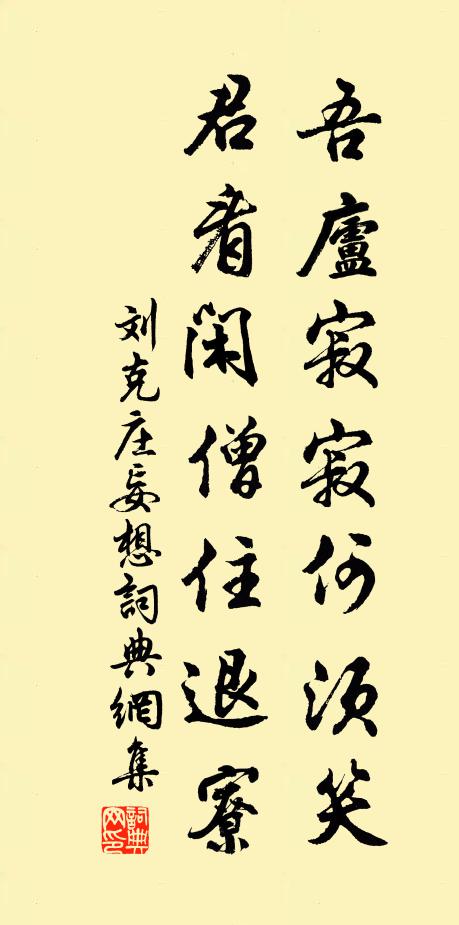 吾廬寂寂何須笑
君看閑僧住退寮
刘克庄妄想詞典網集
詞典网印